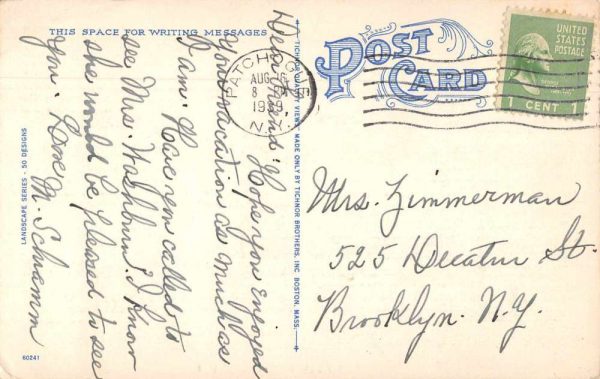 THIS SPACE FOR WRITING MESSAGES
Dear Friend: Hope you enjoyed
your vacation as much as
I am. Have you called to
see Mrs. Washburn? I know
she would be pleased to see
you. Love
M. Schramm
LANDSCAPE SERIES - 50 DESIGNS
60241
"TICHNOR QUALITY VIEWS," MADE ONLY BY TICHNOR BROTHERS, INC. BOSTON, MASS.
POST CARD
PATCHOGUE
AUG 16
8
1939
N.Y.
UNITED
STATES
POSTAGE
1 CENT 1
Mrs. Zimmerman
525 Decatur St.
Brooklyn. N.Y.